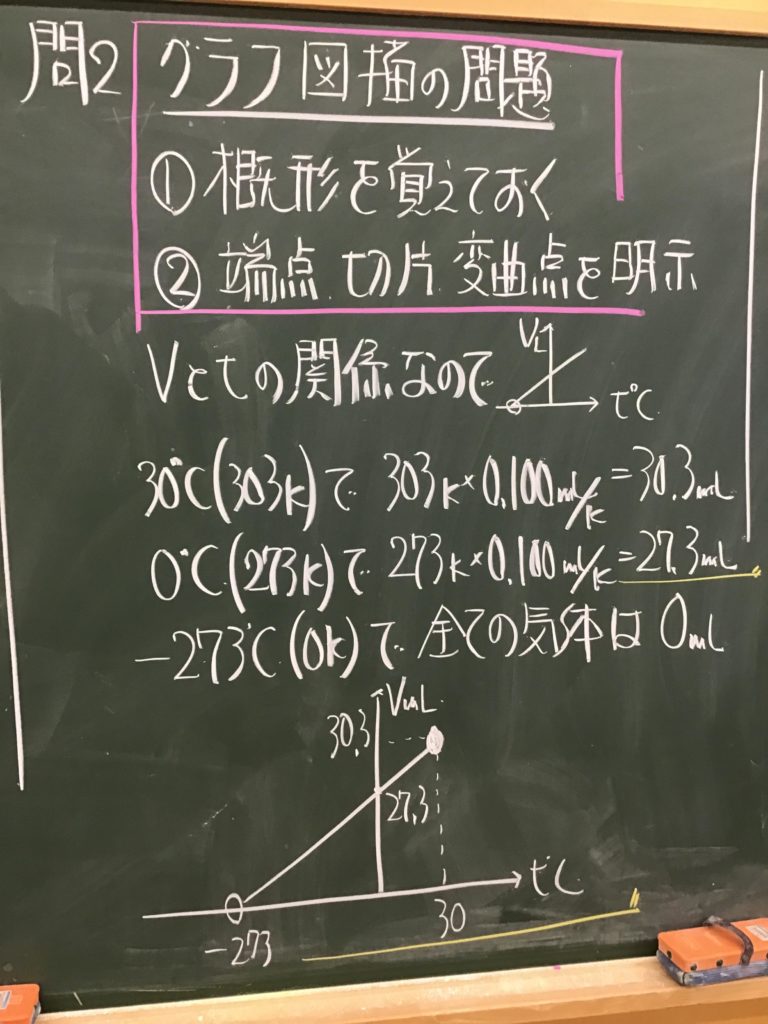 問2 グラフ図描の問題
① 概形を覚えておく
② 端点 切片 変曲点を明示
Vとtの関係なので VL t℃
30℃(303K)で 303K×0.100mL/K=30.3mL
0℃(273K)で 273K×0.100mL/K=27.3mL
-273℃(0K)で 全ての気体は 0mL
VmL
30.3
27.3
t℃
-273 30